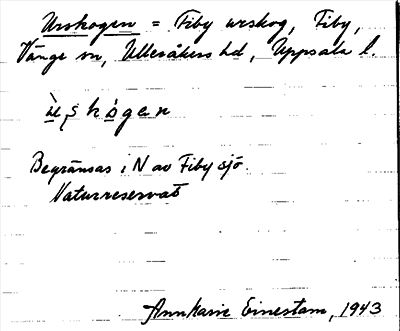 Urskogen = Fiby urskog, Fiby,
Vänge sn, Ulleråkers hd, Uppsala l.
ùʂkógen
Begränsas i N av Fiby sjö.
Naturreservat
AnnMarie Einestam, 1943